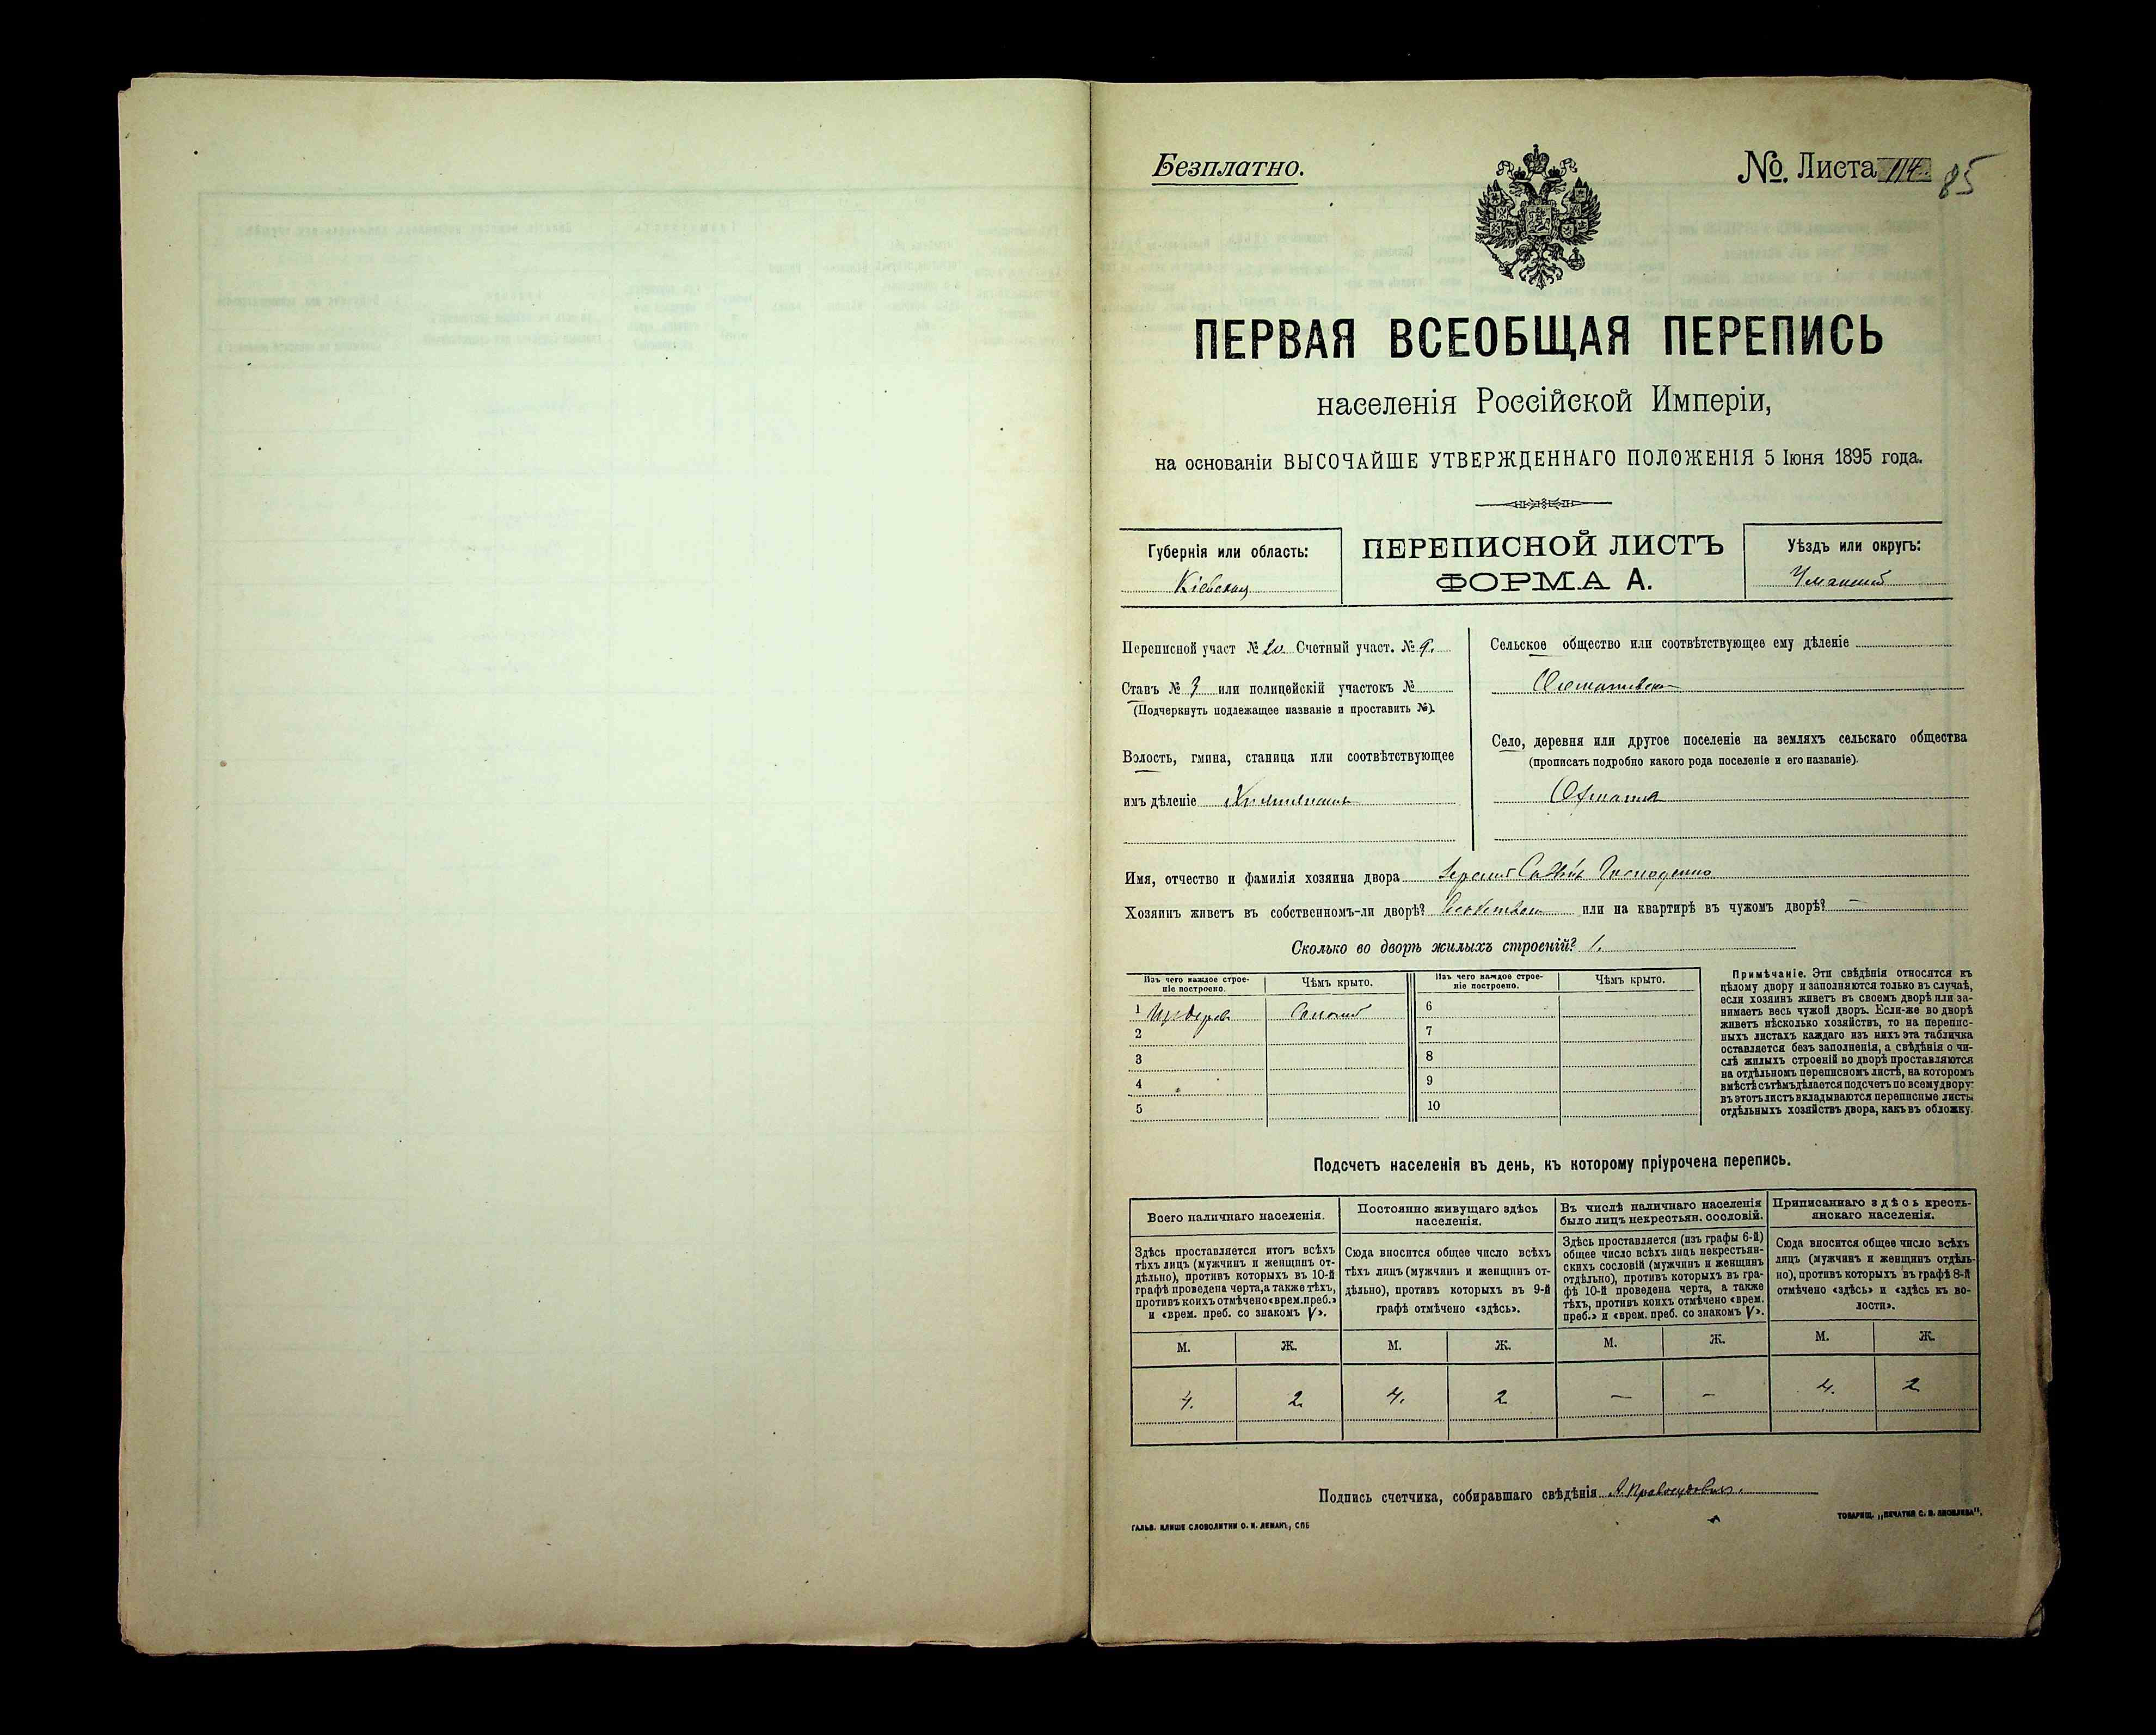 Безплатно.
№. Листа 114. 85
ПЕРВАЯ ВСЕОБЩАЯ ПЕРЕПИСЬ
населенія Россійской Имперіи,
на основаніи ВЫСОЧАЙШЕ УТВЕРЖДЕННАГО ПОЛОЖЕНІЯ 5 Іюня 1895 года.
Губернія или область:
Кіевская
ПЕРЕПИСНОЙ ЛИСТЪ
ФОРМА А.
Уѣздъ или округъ:
Уманскій
Переписной участ № 20 Счетный участ. № 9.
Станъ № 3 или полицейскій участокъ №
(Подчеркнуть подлежащее названіе и проставить №).
Волость, гмина, станица или соотвѣтствующее
имъ дѣленіе
Сельское общество или соотвѣтствующее ему дѣленіе
Село, деревня или другое поселеніе на земляхъ сельскаго общества
(прописать подробно какого рода поселеніе и его названіе).
Имя, отчество и фамилія хозяина двора
Хозяинъ живетъ въ собственномъ-ли дворѣ? или на квартирѣ въ чужомъ дворѣ? —
Сколько во дворѣ жилыхъ строеній? 1.
Изъ чего каждое строе-
ніе построено.
Чѣмъ крыто.
Изъ чего каждое строе-
ніе построено.
Чѣмъ крыто.
1 Соломой 6
2 7
3 8
4 9
5 10
Примѣчаніе. Эти свѣдѣнія относятся къ
цѣлому двору и заполняются только въ случаѣ,
если хозяинъ живетъ въ своемъ дворѣ или за-
нимаетъ весь чужой дворъ. Если-же во дворѣ
живетъ нѣсколько хозяйствъ, то на перепис-
ныхъ листахъ каждаго изъ нихъ эта табличка
оставляется безъ заполненія, а свѣдѣнія о чи-
слѣ жилыхъ строеній во дворѣ проставляются
на отдѣльномъ переписномъ листѣ, на которомъ
вмѣстѣ съ тѣмъ дѣлается подсчетъ по всему двору:
въ этотъ листъ вкладываются переписные листы
отдѣльныхъ хозяйствъ двора, какъ въ обложку.
Подсчетъ населенія въ день, къ которому пріурочена перепись.
Всего наличнаго населенія.
Здѣсь проставляется итогъ всѣхъ
тѣхъ лицъ (мужчинъ и женщинъ от-
дѣльно), противъ которыхъ въ 10-й
графѣ проведена черта, а также тѣхъ,
противъ коихъ отмѣчено «врем. преб.»
и «врем. преб. со знакомъ V».
Постоянно живущаго здѣсь
населенія.
Сюда вносится общее число всѣхъ
тѣхъ лицъ (мужчинъ и женщинъ от-
дѣльно), противъ которыхъ въ 9-й
графѣ отмѣчено «здѣсь».
Въ числѣ наличнаго населенія
было лицъ некрестьян. сословій.
Здѣсь проставляется (изъ графы 6-й)
общее число всѣхъ лицъ некрестьян-
скихъ сословій (мужчинъ и женщинъ
отдѣльно), противъ которыхъ въ гра-
фѣ 10-й проведена черта, а также
тѣхъ, противъ коихъ отмѣчено «врем.
преб.» и «врем. преб. со знакомъ V».
Приписаннаго здѣсь кресть-
янскаго населенія.
Сюда вносится общее число всѣхъ
лицъ (мужчинъ и женщинъ отдѣль-
но), противъ которыхъ въ графѣ 8-й
отмѣчено «здѣсь» и «здѣсь къ во-
лости».
М. Ж. М. Ж. М. Ж. М. Ж.
4. 2 4. 2 — — 4. 2
Подпись счетчика, собиравшаго свѣдѣнія
ГАЛЬВ. КЛИШЕ СЛОВОЛИТНИ О. И. ЛЕМАНЪ, СПБ
ТОВАРИЩ. „ПЕЧАТНЯ С. П. ЯКОВЛЕВА".